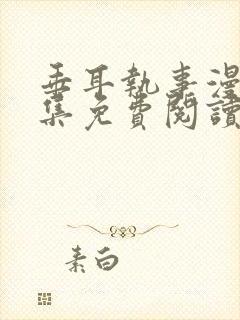 垂耳執事漫
集免費閱讀
素白